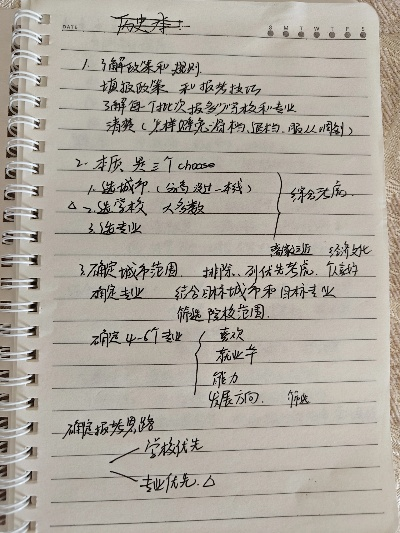 DATE S M T W T F S
1. 了解政策和规则
填报政策 和报考技巧
了解每个批次报多少学校和专业
清楚(怎样避免滑档、退档、服从调剂)
2. 本质 是三个choose
1. 选城市(分高过一本线)
△ 2. 选学校 大多数
3. 选专业
综合考虑
离家远近 经济文化
3. 确定城市范围 排除、列优先考虑、
确定专业 结合目标城市和目标专业
筛选院校范围
确定4-6个专业
喜欢
就业率
能力
发展方向、筛选
确定报考思路
学校优先
专业优先 △